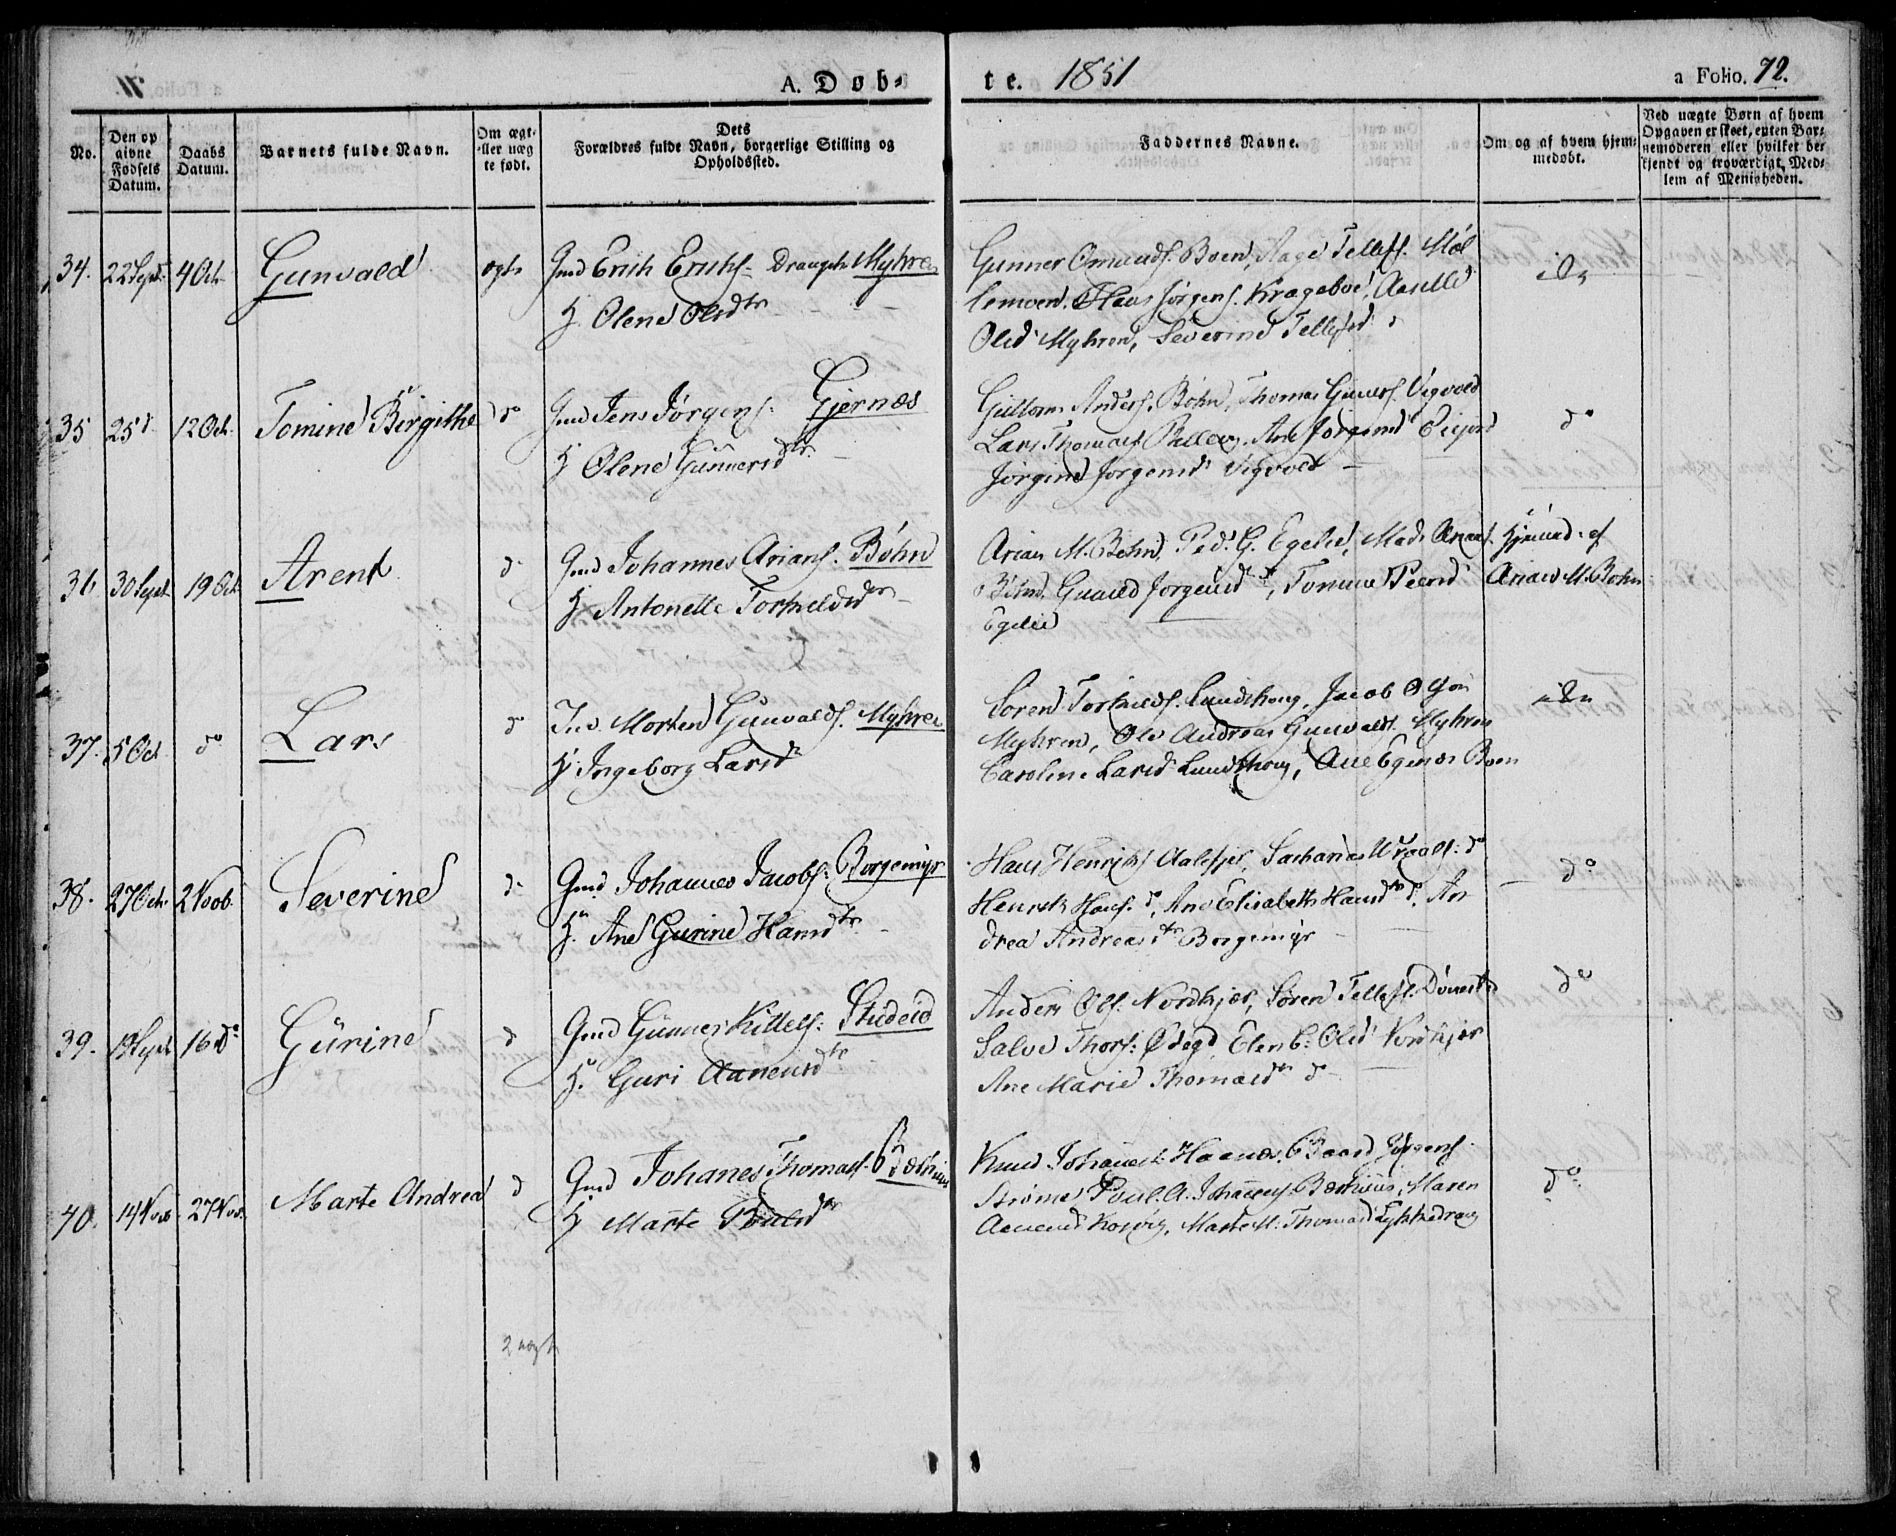 A. Døb-
te. 1851
a Folio. 72.
No.
Den op
givne
Fødsels
Datum.
Daabs
Datum.
Barnets fulde Navn.
Om ægt-
eller uæg
te født.
Dets
Forældres fulde Navn, borgerlige Stilling og
Opholdssted.
Faddernes Navne.
Om og af hvem hjem-
medøbt.
Ved uægte Børn af hvem
Opgaven er skeet, enten Bar-
nemoderen eller hvilket be-
kjendt og troværdigt Med-
lem af Menigheden.
34. 22 Sept. 4 Oct. Gunvald ægte Gmd Erich Erichs. Myhren
H. Olene Olsdtr
Gunner Omunds. Boen, Aage Tellefs. Møl
lemoen. Hans Jørgens. Krageboe,
Olsd Myhren, Severine Tellefsd
35 25 d. 12 Oct. Tomine Birgithe do Gmd Jens Jørgens. Gjernæs
H Olene Gunnersdtr.
Guttorm Anders. Bøhn, Thomas Gunners. Vigvold
Lars Thomas. Ane Jørgensd
Jørgine Jørgensd Vigvold
do
36 30 Sept. 19 Oct. Arent d. Gmd Johannes Arians. Bøhn
H Antonette Torkeldsdtr
Arian M. Bøhn, Ped. G. Egelid, Mads Arians.
Bøhn. Jørgensd, Tomine Peersd
Egelid
Hjemmed. af
Arian M. Bøhn
37. 5 Oct. do Lars d Morten Gunvalds. Myhren
H. Ingeborg Larsd
Søren Torkelds. Lundskoug, Jacob
Myhren, Ole Andreas Gunvalds. Myhren
Caroline Larsd Lundskoug, Boen
38. 27 Oct. 2 Novb. Severine d. Gmd Johannes Jacobs. Borgemyr
H. Ane Gurine Hansdtr.
Hans Henriks. Sacharias do
Henrik Hans. d, Ane Elisabeth Hansdtr d. An
drea Andreasdtr Borgemyr
do
39. 19 Sept. 16 do Gurine d Gmd Gunner Kittels. Studeid
H. Guri Aanensdtr
Anders Ols. Nordkjær, Søren Tellefs.
Salve Thors. Ødegd, Elen C. Olsd Nordkjær
Ane Marie Thomasdtr d
do
40. 14 Nov. 27 Nov. Marte Andrea d Gmd Johanes Thomass. Bæshuus
H Marte Poulsdtr
Knud Johannes. Haanes, Baard Jørgens.
Strømme, Poul A. Johannes. Bæshuus, Maren
Aanensd Kosvig, Marte M. Thomasd
do
2 uægte